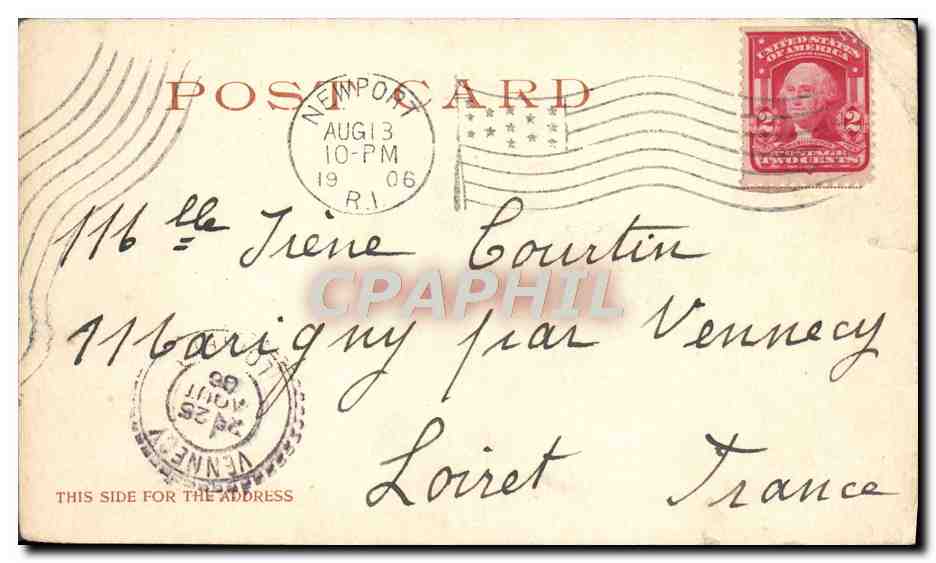 POST CARD
NEWPORT
AUG 13
10-PM
19 06
R.I.
UNITED STATES
OF AMERICA
2 2
POSTAGE
TWO CENTS
Mlle Irène Courtin
CPAPHIL
Marigny par Vennecy
Loiret France
VENNECY
25
AOUT
06
LOIRET
THIS SIDE FOR THE ADDRESS